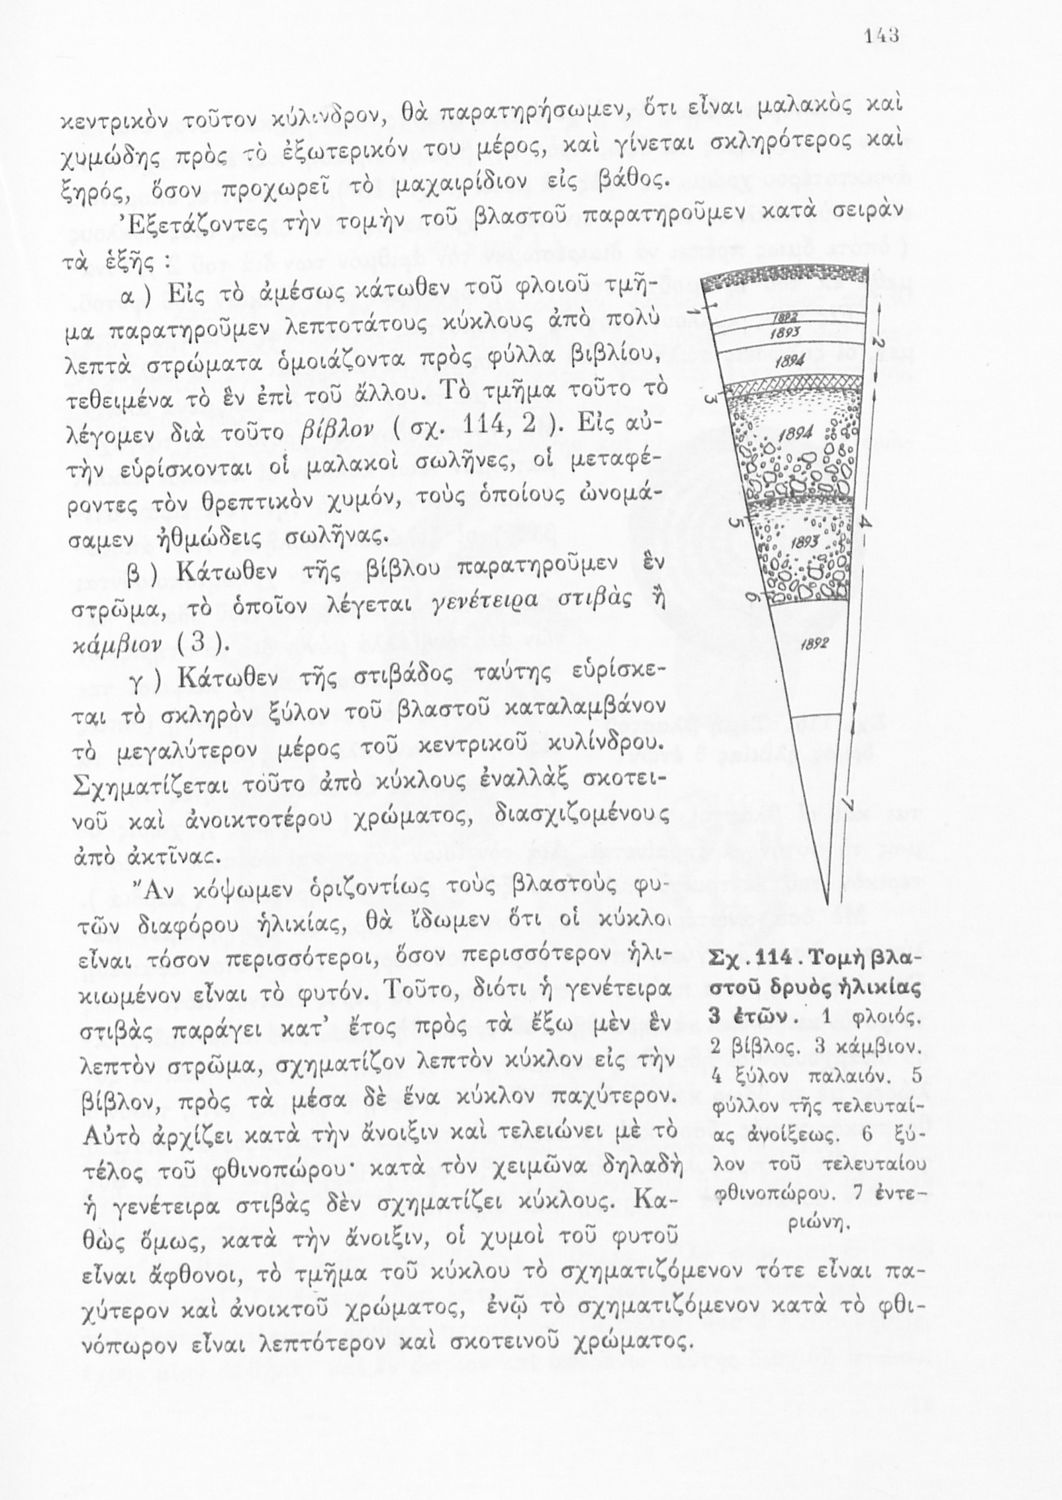 143
κεντρικὸν τοῦτον κύλινδρον, θὰ παρατηρήσωμεν, ὅτι εἶναι μαλακὸς καὶ
χυμώδης πρὸς τὸ ἐξωτερικόν του μέρος, καὶ γίνεται σκληρότερος καὶ
ξηρός, ὅσον προχωρεῖ τὸ μαχαιρίδιον εἰς βάθος.
Ἐξετάζοντες τὴν τομὴν τοῦ βλαστοῦ παρατηροῦμεν κατὰ σειρὰν
τὰ ἑξῆς :
α ) Εἰς τὸ ἀμέσως κάτωθεν τοῦ φλοιοῦ τμῆ-
μα παρατηροῦμεν λεπτοτάτους κύκλους ἀπὸ πολὺ
λεπτὰ στρώματα ὁμοιάζοντα πρὸς φύλλα βιβλίου,
τεθειμένα τὸ ἓν ἐπὶ τοῦ ἄλλου. Τὸ τμῆμα τοῦτο τὸ
λέγομεν διὰ τοῦτο βίβλον ( σχ. 114, 2 ). Εἰς αὐ-
τὴν εὑρίσκονται οἱ μαλακοὶ σωλῆνες, οἱ μεταφέ-
ροντες τὸν θρεπτικὸν χυμόν, τοὺς ὁποίους ὠνομά-
σαμεν ἠθμώδεις σωλῆνας.
β ) Κάτωθεν τῆς βίβλου παρατηροῦμεν ἓν
στρῶμα, τὸ ὁποῖον λέγεται γενέτειρα στιβὰς ἢ
κάμβιον ( 3 ).
γ ) Κάτωθεν τῆς στιβάδος ταύτης εὑρίσκε-
ται τὸ σκληρὸν ξύλον τοῦ βλαστοῦ καταλαμβάνον
τὸ μεγαλύτερον μέρος τοῦ κεντρικοῦ κυλίνδρου.
Σχηματίζεται τοῦτο ἀπὸ κύκλους ἐναλλὰξ σκοτει-
νοῦ καὶ ἀνοικτοτέρου χρώματος, διασχιζομένους
ἀπὸ ἀκτῖνας.
Ἂν κόψωμεν ὁριζοντίως τοὺς βλαστοὺς φυ-
τῶν διαφόρου ἡλικίας, θὰ ἴδωμεν ὅτι οἱ κύκλοι
εἶναι τόσον περισσότεροι, ὅσον περισσότερον ἡλι-
κιωμένον εἶναι τὸ φυτόν. Τοῦτο, διότι ἡ γενέτειρα
στιβὰς παράγει κατ' ἔτος πρὸς τὰ ἔξω μὲν ἓν
λεπτὸν στρῶμα, σχηματίζον λεπτὸν κύκλον εἰς τὴν
βίβλον, πρὸς τὰ μέσα δὲ ἕνα κύκλον παχύτερον.
Αὐτὸ ἀρχίζει κατὰ τὴν ἄνοιξιν καὶ τελειώνει μὲ τὸ
τέλος τοῦ φθινοπώρου· κατὰ τὸν χειμῶνα δηλαδὴ
ἡ γενέτειρα στιβὰς δὲν σχηματίζει κύκλους. Κα-
θὼς ὅμως, κατὰ τὴν ἄνοιξιν, οἱ χυμοὶ τοῦ φυτοῦ
εἶναι ἄφθονοι, τὸ τμῆμα τοῦ κύκλου τὸ σχηματιζόμενον τότε εἶναι πα-
χύτερον καὶ ἀνοικτοῦ χρώματος, ἐνῷ τὸ σχηματιζόμενον κατὰ τὸ φθι-
νόπωρον εἶναι λεπτότερον καὶ σκοτεινοῦ χρώματος.
1
1892
1893
2
1894
3
1894
5
4
1893
6
1892
7
Σχ. 114. Τομὴ βλα-
στοῦ δρυὸς ἡλικίας
3 ἐτῶν. 1 φλοιός.
2 βίβλος. 3 κάμβιον.
4 ξύλον παλαιόν. 5
φύλλον τῆς τελευταί-
ας ἀνοίξεως. 6 ξύ-
λον τοῦ τελευταίου
φθινοπώρου. 7 ἐντε-
ριώνη.